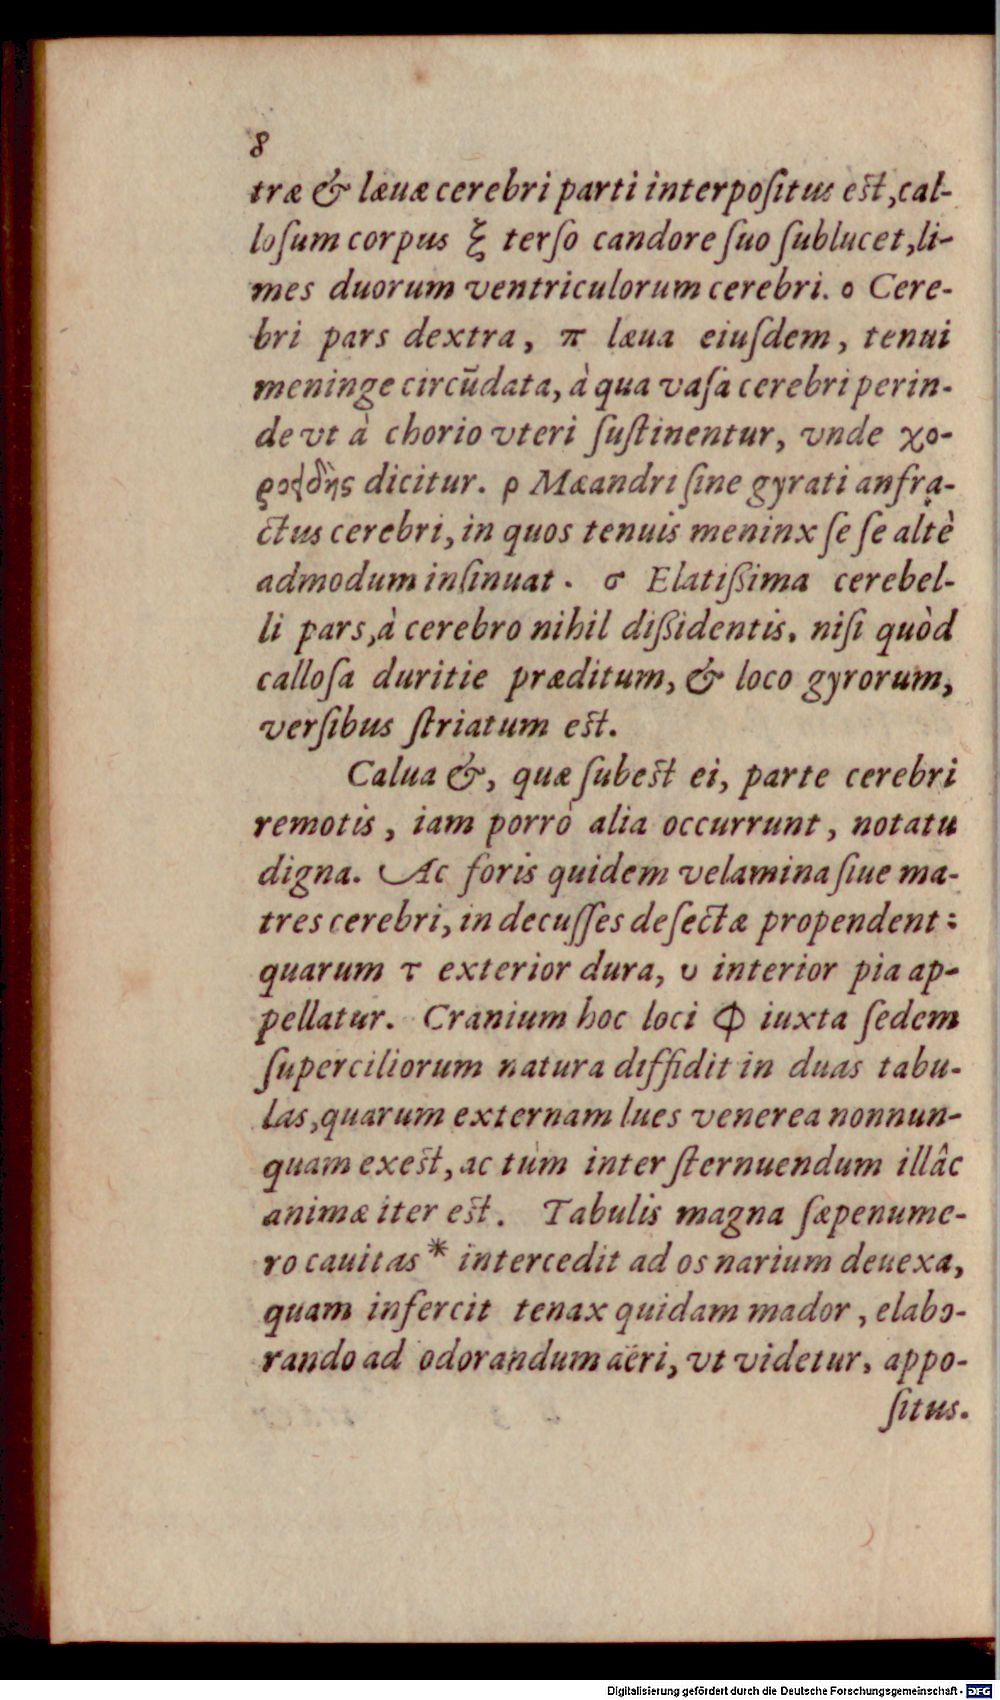 8
træ & læuæ cerebri parti interpoſitus eſt, cal-
loſum corpus ξ terſo candore ſuo ſublucet, li-
mes duorum ventriculorum cerebri. ο Cere-
bri pars dextra, π læua eiuſdem, tenui
meninge circũdata, à qua vaſa cerebri perin-
de vt à chorio vteri ſuſtinentur, vnde χο-
ροειδὴς dicitur. ρ Mæandri ſine gyrati anfra-
ctus cerebri, in quos tenuis meninx ſe ſe altè
admodum inſinuat. σ Elatißima cerebel-
li pars, à cerebro nihil dißidentis, niſi quòd
calloſa duritie præditum, & loco gyrorum,
verſibus ſtriatum eſt.
Calua &, quæ ſubeſt ei, parte cerebri
remotis, iam porrò alia occurrunt, notatu
digna. Ac foris quidem velamina ſiue ma-
tres cerebri, in decuſſes deſectæ propendent:
quarum τ exterior dura, υ interior pia ap-
pellatur. Cranium hoc loci Φ iuxta ſedem
ſuperciliorum natura diffidit in duas tabu-
las, quarum externam lues venerea nonnun-
quam exeſt, ac tùm inter ſternuendum illâc
animæ iter eſt. Tabulis magna ſæpenume-
ro cauitas * intercedit ad os narium deuexa,
quam infercit tenax quidam mador, elabo-
rando ad odorandum aëri, vt videtur, appo-
ſitus.
Digitalisierung gefördert durch die Deutsche Forschungsgemeinschaft - DFG